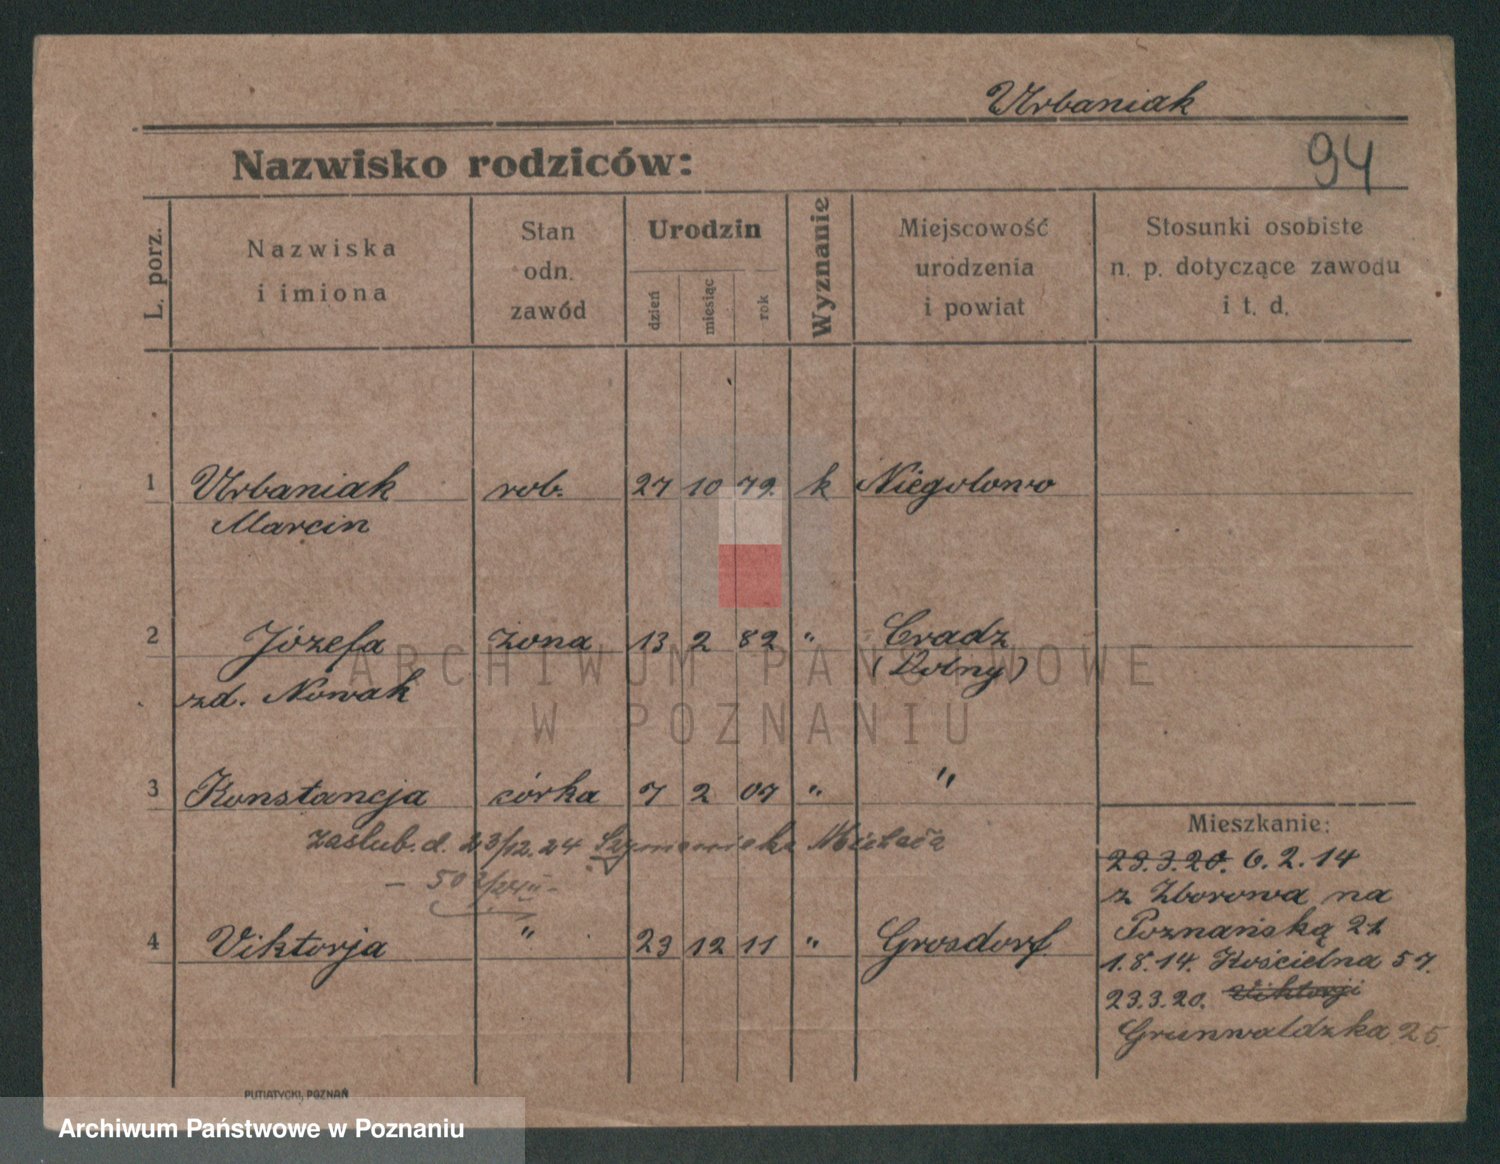 Urbaniak
Nazwisko rodziców:
94
L. porz.
Nazwiska
i imiona
Stan
odn.
zawód
Urodzin
dzień
miesiąc
rok
Wyznanie
Miejscowość
urodzenia
i powiat
Stosunki osobiste
n. p. dotyczące zawodu
i t. d.
1 Urbaniak rob. 27 10 79. k Niegolewo
Marcin
2 Józefa żona 13 2 82 " Cradz
zd. Nowak (Dolny)
3 Konstancja córka 7 2 07 " "
zaślub. d. 23/12.24
4 Viktorja " 23 12 11 " Grosdorf
Mieszkanie:
23.3.20. 6.2.14
z Zborowa na
Poznańską 21
1.8.14. Kościelna 57.
23.3.20. Viktorji
Grunwaldzka 25.
PUTIATYCKI, POZNAŃ
ARCHIWUM PAŃSTWOWE
W POZNANIU
Archiwum Państwowe w Poznaniu